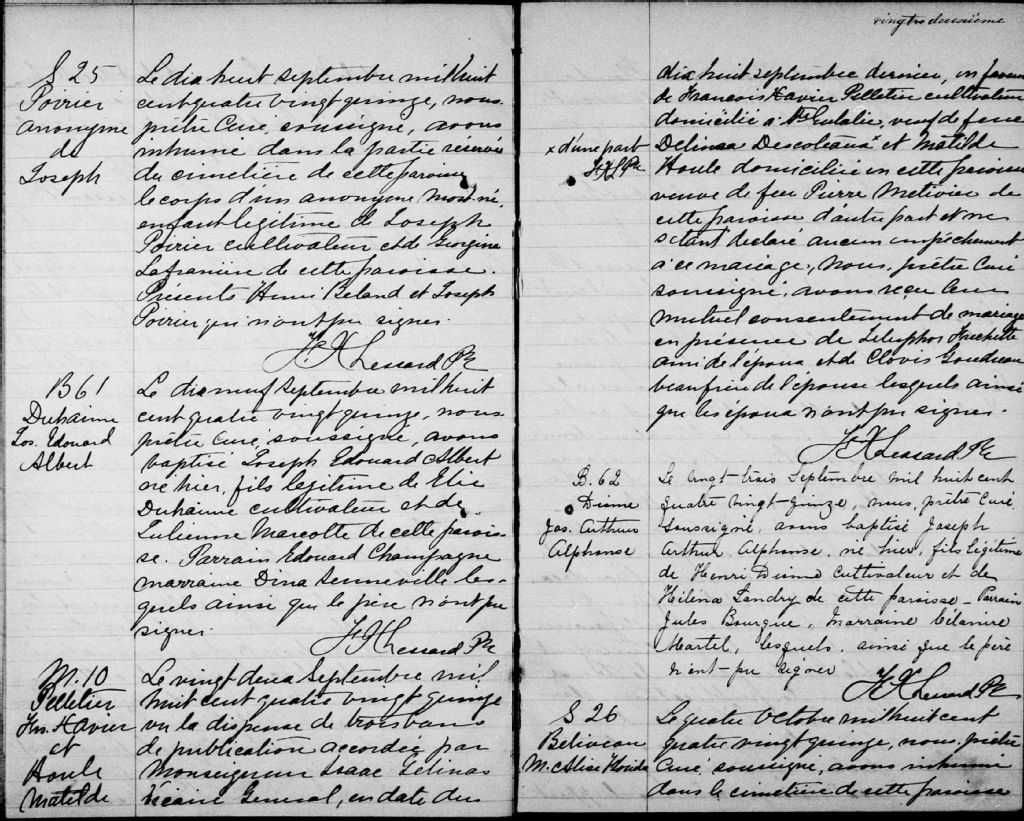 S 25
Poirier
anonyme
de
Joseph
Le dix huit septembre mil huit
cent quatre vingt quinze, nous
prêtre Curé, soussigné, avons
inhumé dans la partie reservée
du cimetière de cette paroisse
le corps d'un anonyme mort-né,
enfant légitime de Joseph
Poirier cultivateur et de Georgina
Lafranière de cette paroisse.
Présents Henri Beland et Joseph
Poirier qui n'ont pu signer.
F. X Lessard Ptr
B 61
Duhaime
Jos. Edouard
Albert
Le dix neuf septembre mil huit
cent quatre vingt quinze, nous
prêtre Curé, soussigné, avons
baptisé Joseph Edouard Albert
né hier, fils légitime de Elie
Duhaime cultivateur et de
Julienne Marcotte de cette parois-
se. Parrain Edouard Champagne
marraine Dina Senneville les-
quels ainsi que le père n'ont pu
signer.
F X Lessard Ptr
M. 10
Pelletier
Frs. Xavier
et
Houle
Matilde
Le vingt deux Septembre mil
huit cent quatre vingt quinze
vu la dispense de trois bans
de publication accordée par
Monseigneur Isaac Gélinas
Vicaire Général, en date du
vingt deuxième
dix huit septembre dernier, en faveur
de François Xavier Pelletier cultivateur
domicilié à Ste Eulalie, veuf de feue
x d'une part
F. X L Ptr
Delinea Descoteaux x et Matilde
Houle domiciliée en cette paroisse
veuve de feu Pierre Metivier de
cette paroisse d'autre part et ne
s'étant déclaré aucun empêchement
à ce mariage, Nous, prêtre Curé
soussigné, avons reçu leur
mutuel consentement de mariage
en présence de Telesphor Frechette
ami de l'époux et de Clovis Goudreau
beaufrère de l'épouse lesquels ainsi
que les époux n'ont pu signer.
F. X Lessard. Ptr
B. 62
Dionne
Jos. Arthur
Alphonse
Le vingt-trois Septembre mil huit cent
quatre vingt-quinze, nous, prêtre Curé
Soussigné, avons baptisé Joseph
Arthur Alphonse, né hier, fils légitime
de Henri Dionne Cultivateur et de
Hélina Landry de cette paroisse - Parrain
Jules Bourque, Marraine Célanire
Martel, lesquels, ainsi que le père
n'ont-pu signer
F. X Lessard Ptr
S 26
Beliveau
M. Alice Florida
Le quatre Octobre mil huit cent
quatre vingt quinze, nous, prêtre
Curé, soussigné, avons inhumé
dans le cimetière de cette paroisse